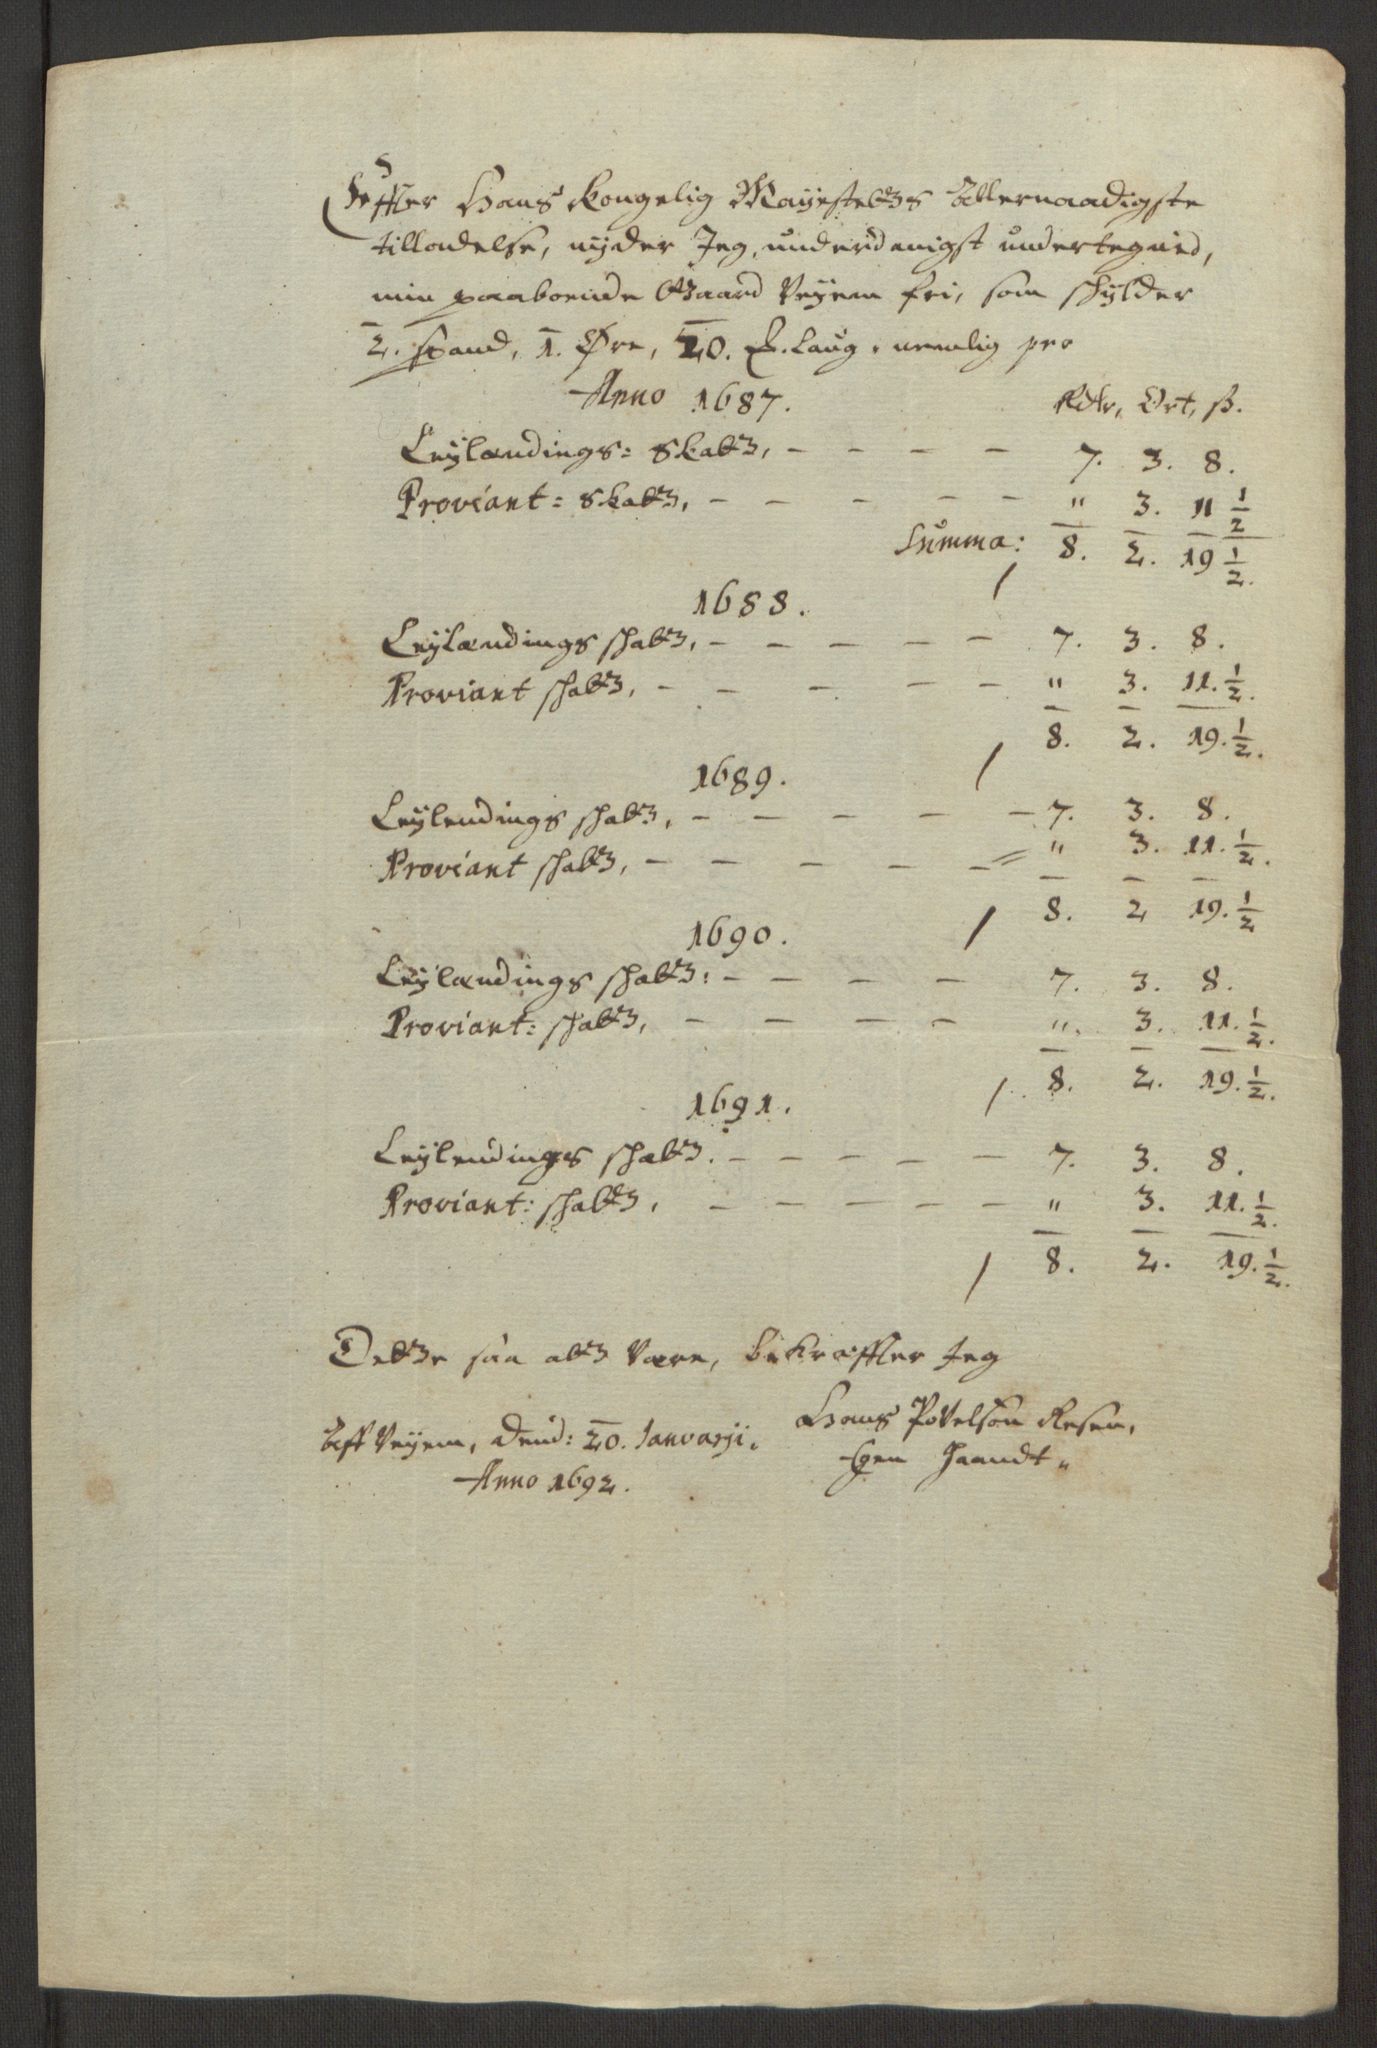 Effter Hans Kongelig Mayestetz Allernaadigste
tilladelse, nyder Jeg, underdanigst undertegned,
min paaboende Gaard Veyem fri, som schylder
2. spand, 1. Øre, 20. L. laug. nemlig pro
Anno 1687. Rdlr, Ort, ß.
Leylændings: Skatz, - - - - 7. 3. 8.
Proviant: Skatz, - - - - - " 3. 11 1/2
Summa: 8. 2. 19 1/2.
1688.
Leylændings schatz, - - - - - 7. 3. 8.
Proviant schatz, - - - - - " 3. 11. 1/2.
8. 2. 19. 1/2.
1689.
Leylendings schatz, - - - - - 7. 3. 8.
Proviant schatz, - - - - - " 3. 11. 1/2.
8. 2 19. 1/2
1690.
Leylændings schatz: - - - - 7. 3. 8.
Proviant: schatz, - - - - ". 3. 11. 1/2.
8. 2. 19. 1/2.
1691.
Leylendings schatz. - - - - - 7. 3. 8.
Proviant: schatz, - - - - - " 3. 11. 1/2.
8. 2. 19. 1/2.
Dettze saa attz være, bekræffter Jeg
Aff Veyem, dend: 20. Januarji. Hans Povelsøn Resen,
Anno 1692. Egen Haandt "